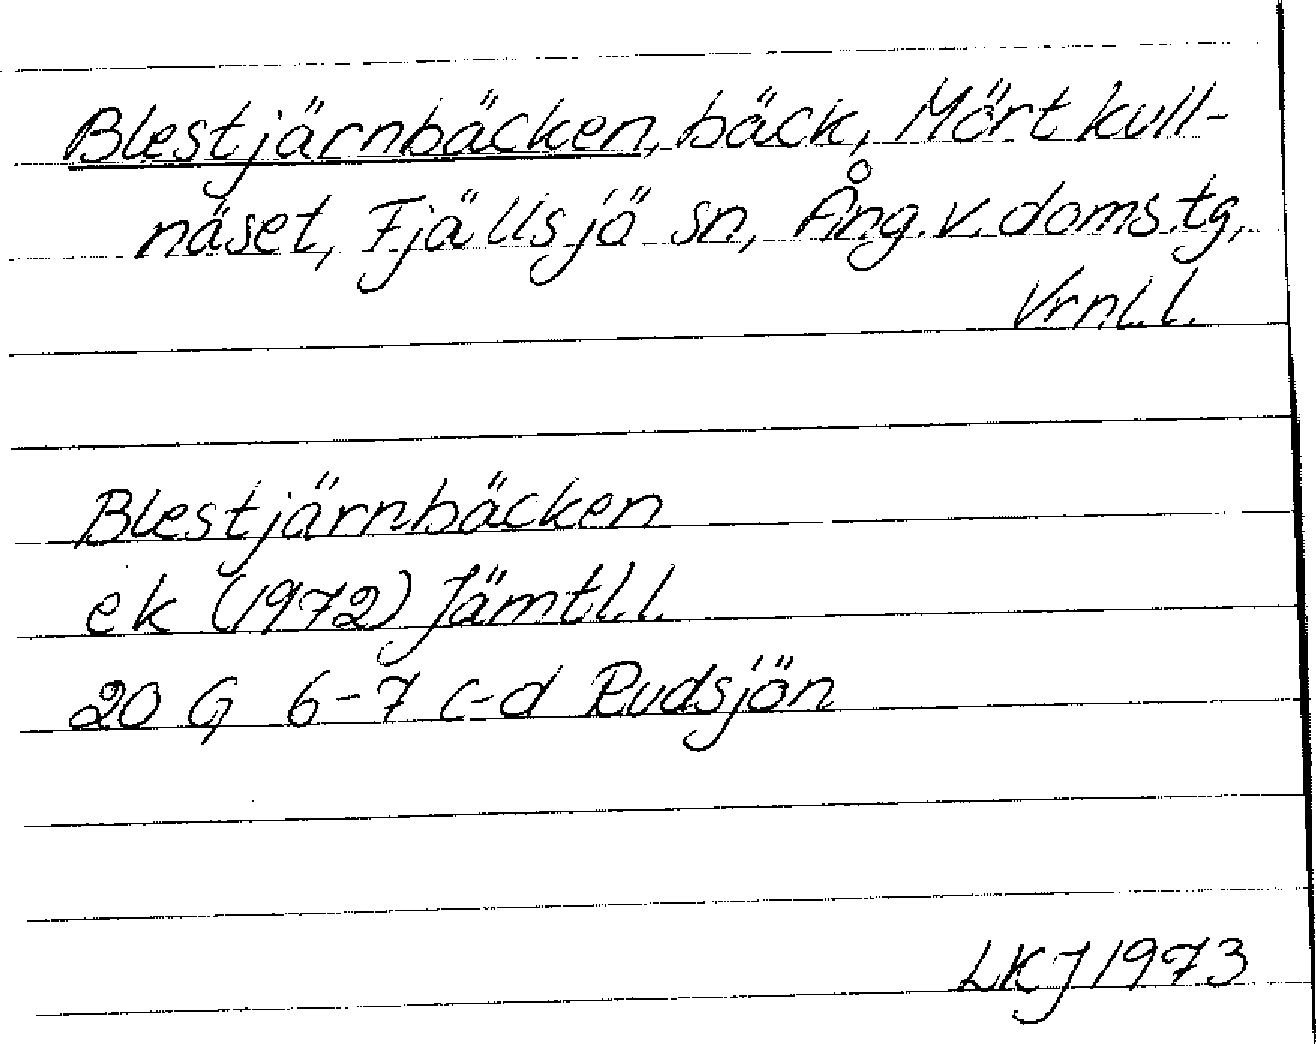 Blestjärnbäcken, bäck, Mörtkull-
näset, Fjällsjö sn, Ång.v.doms.tg,
Vrnl.l.
Blestjärnbäcken
ek (1972) Jämtl.l.
20 G 6-7 c-d Rudsjön
LKJ 1973